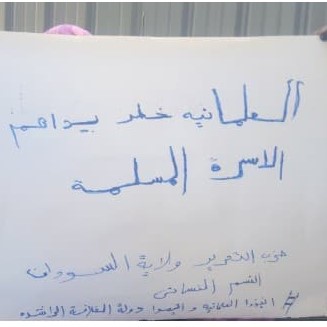 العلمانيه خطر يداهم
الاسرة المسلمة
حزب التحرير ولاية السودان
القسم النسائي
# انبذوا العلمانية و اقيموا دولة الخلافة الراشدة